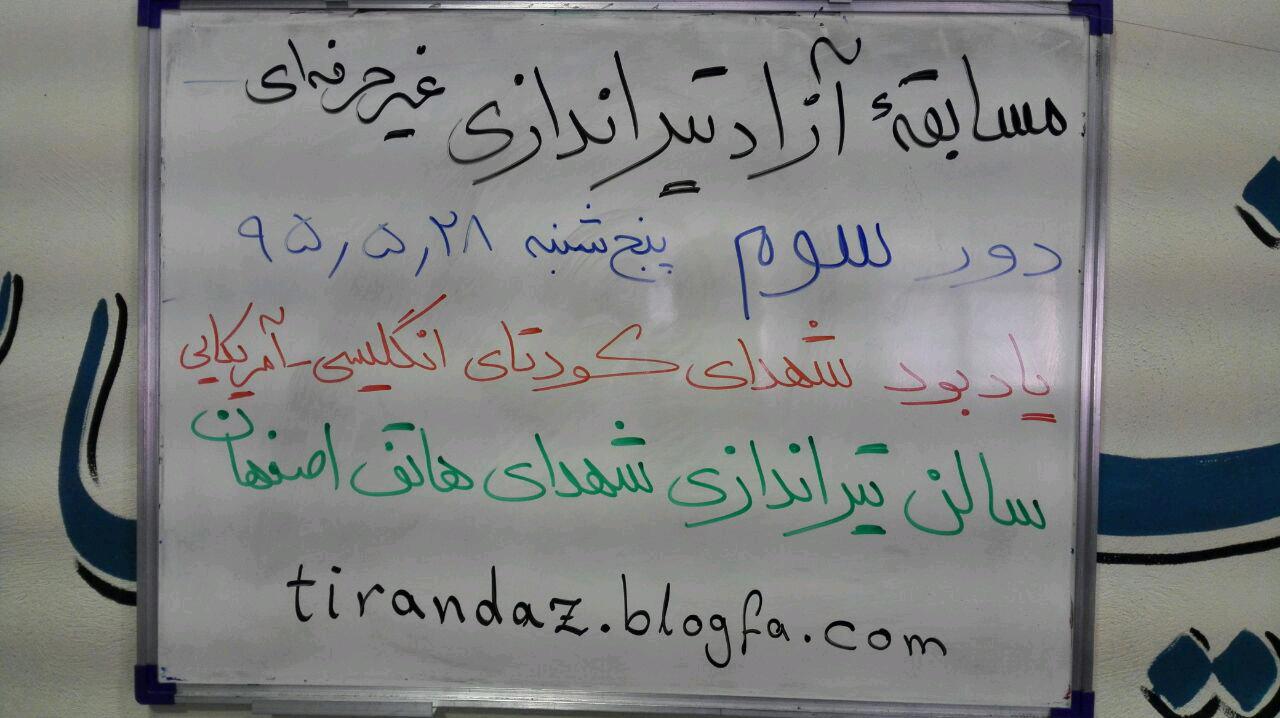 مسابقهٔ آزاد تیراندازی غیرحرفه‌ای
دور سوم پنج‌شنبه ۹۵٫۵٫۲۸
یادبود شهدای کودتای انگلیسی-آمریکایی
سالن تیراندازی شهدای هاتف اصفهان
tirandaz.blogfa.com